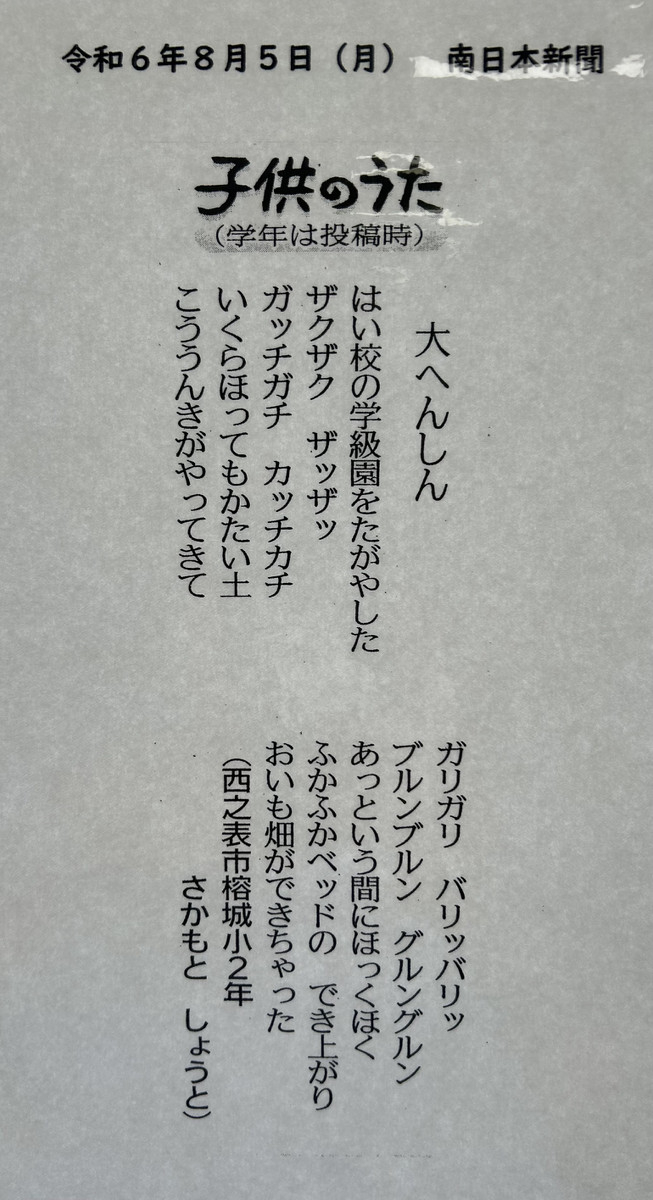 令和６年８月５日（月）　南日本新聞
子供のうた
（学年は投稿時）
大へんしん
はい校の学級園をたがやした
ザクザク　ザッザッ
ガッチガチ　カッチカチ
いくらほってもかたい土
こううんきがやってきて
ガリガリ　バリッバリッ
ブルンブルン　グルングルン
あっという間にほっくほく
ふかふかベッドの　でき上がり
おいも畑ができちゃった
（西之表市榕城小２年
さかもと　しょうと）